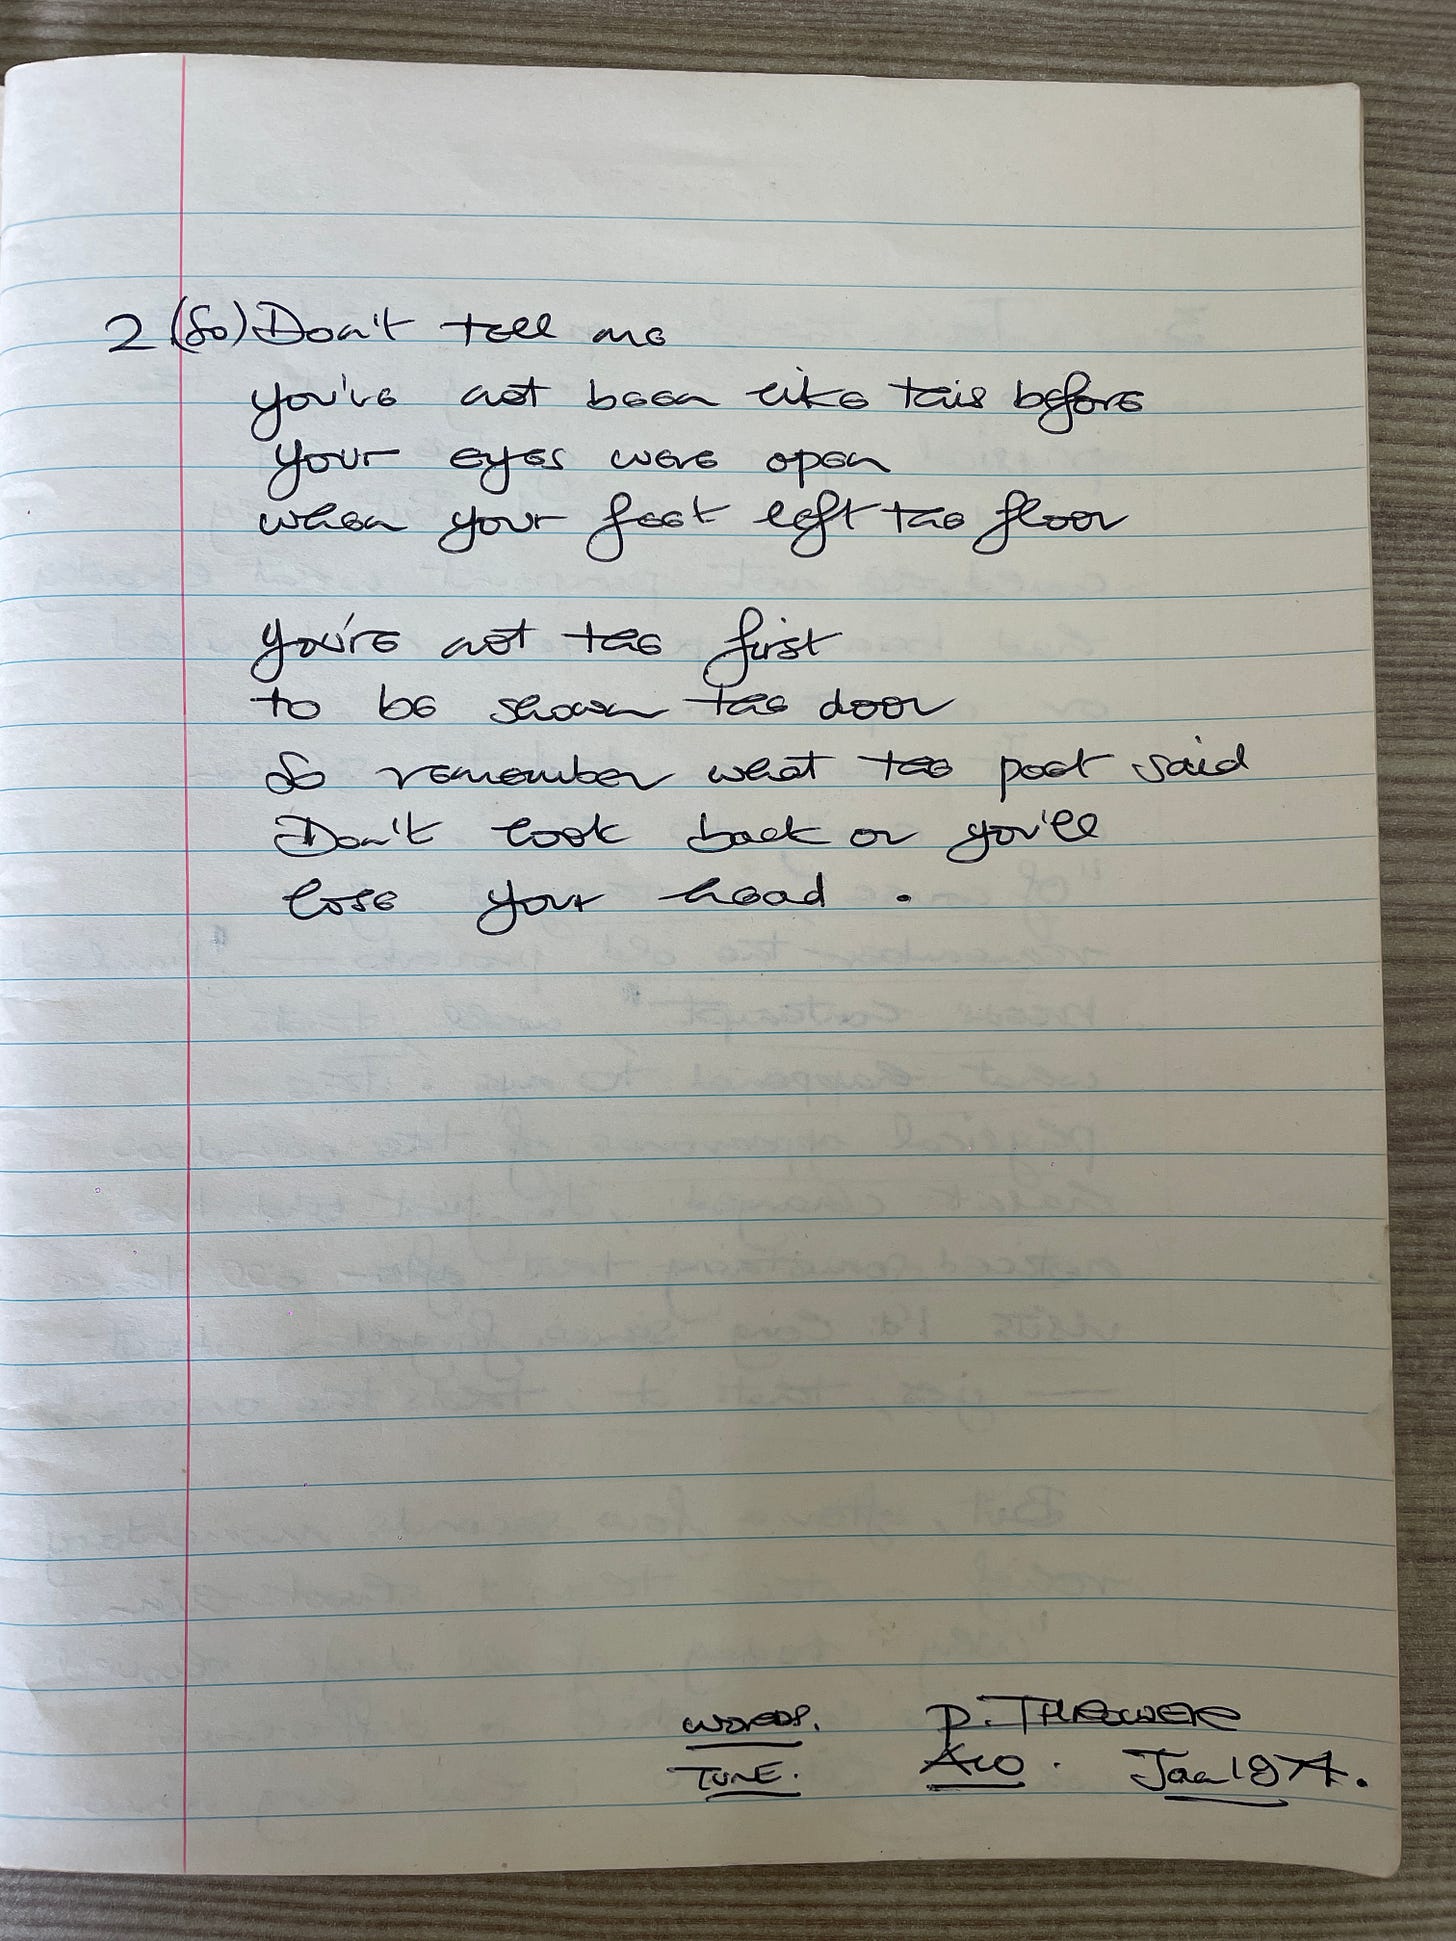 2 (So) Don't tell me
you've not been like this before
your eyes were open
when your feet left the floor
you're not the first
to be shown the door
So remember what the poet said
Don't look back or you'll
lose your head.
WORDS. P. THROWER
TUNE. AWO. Jan 1974.